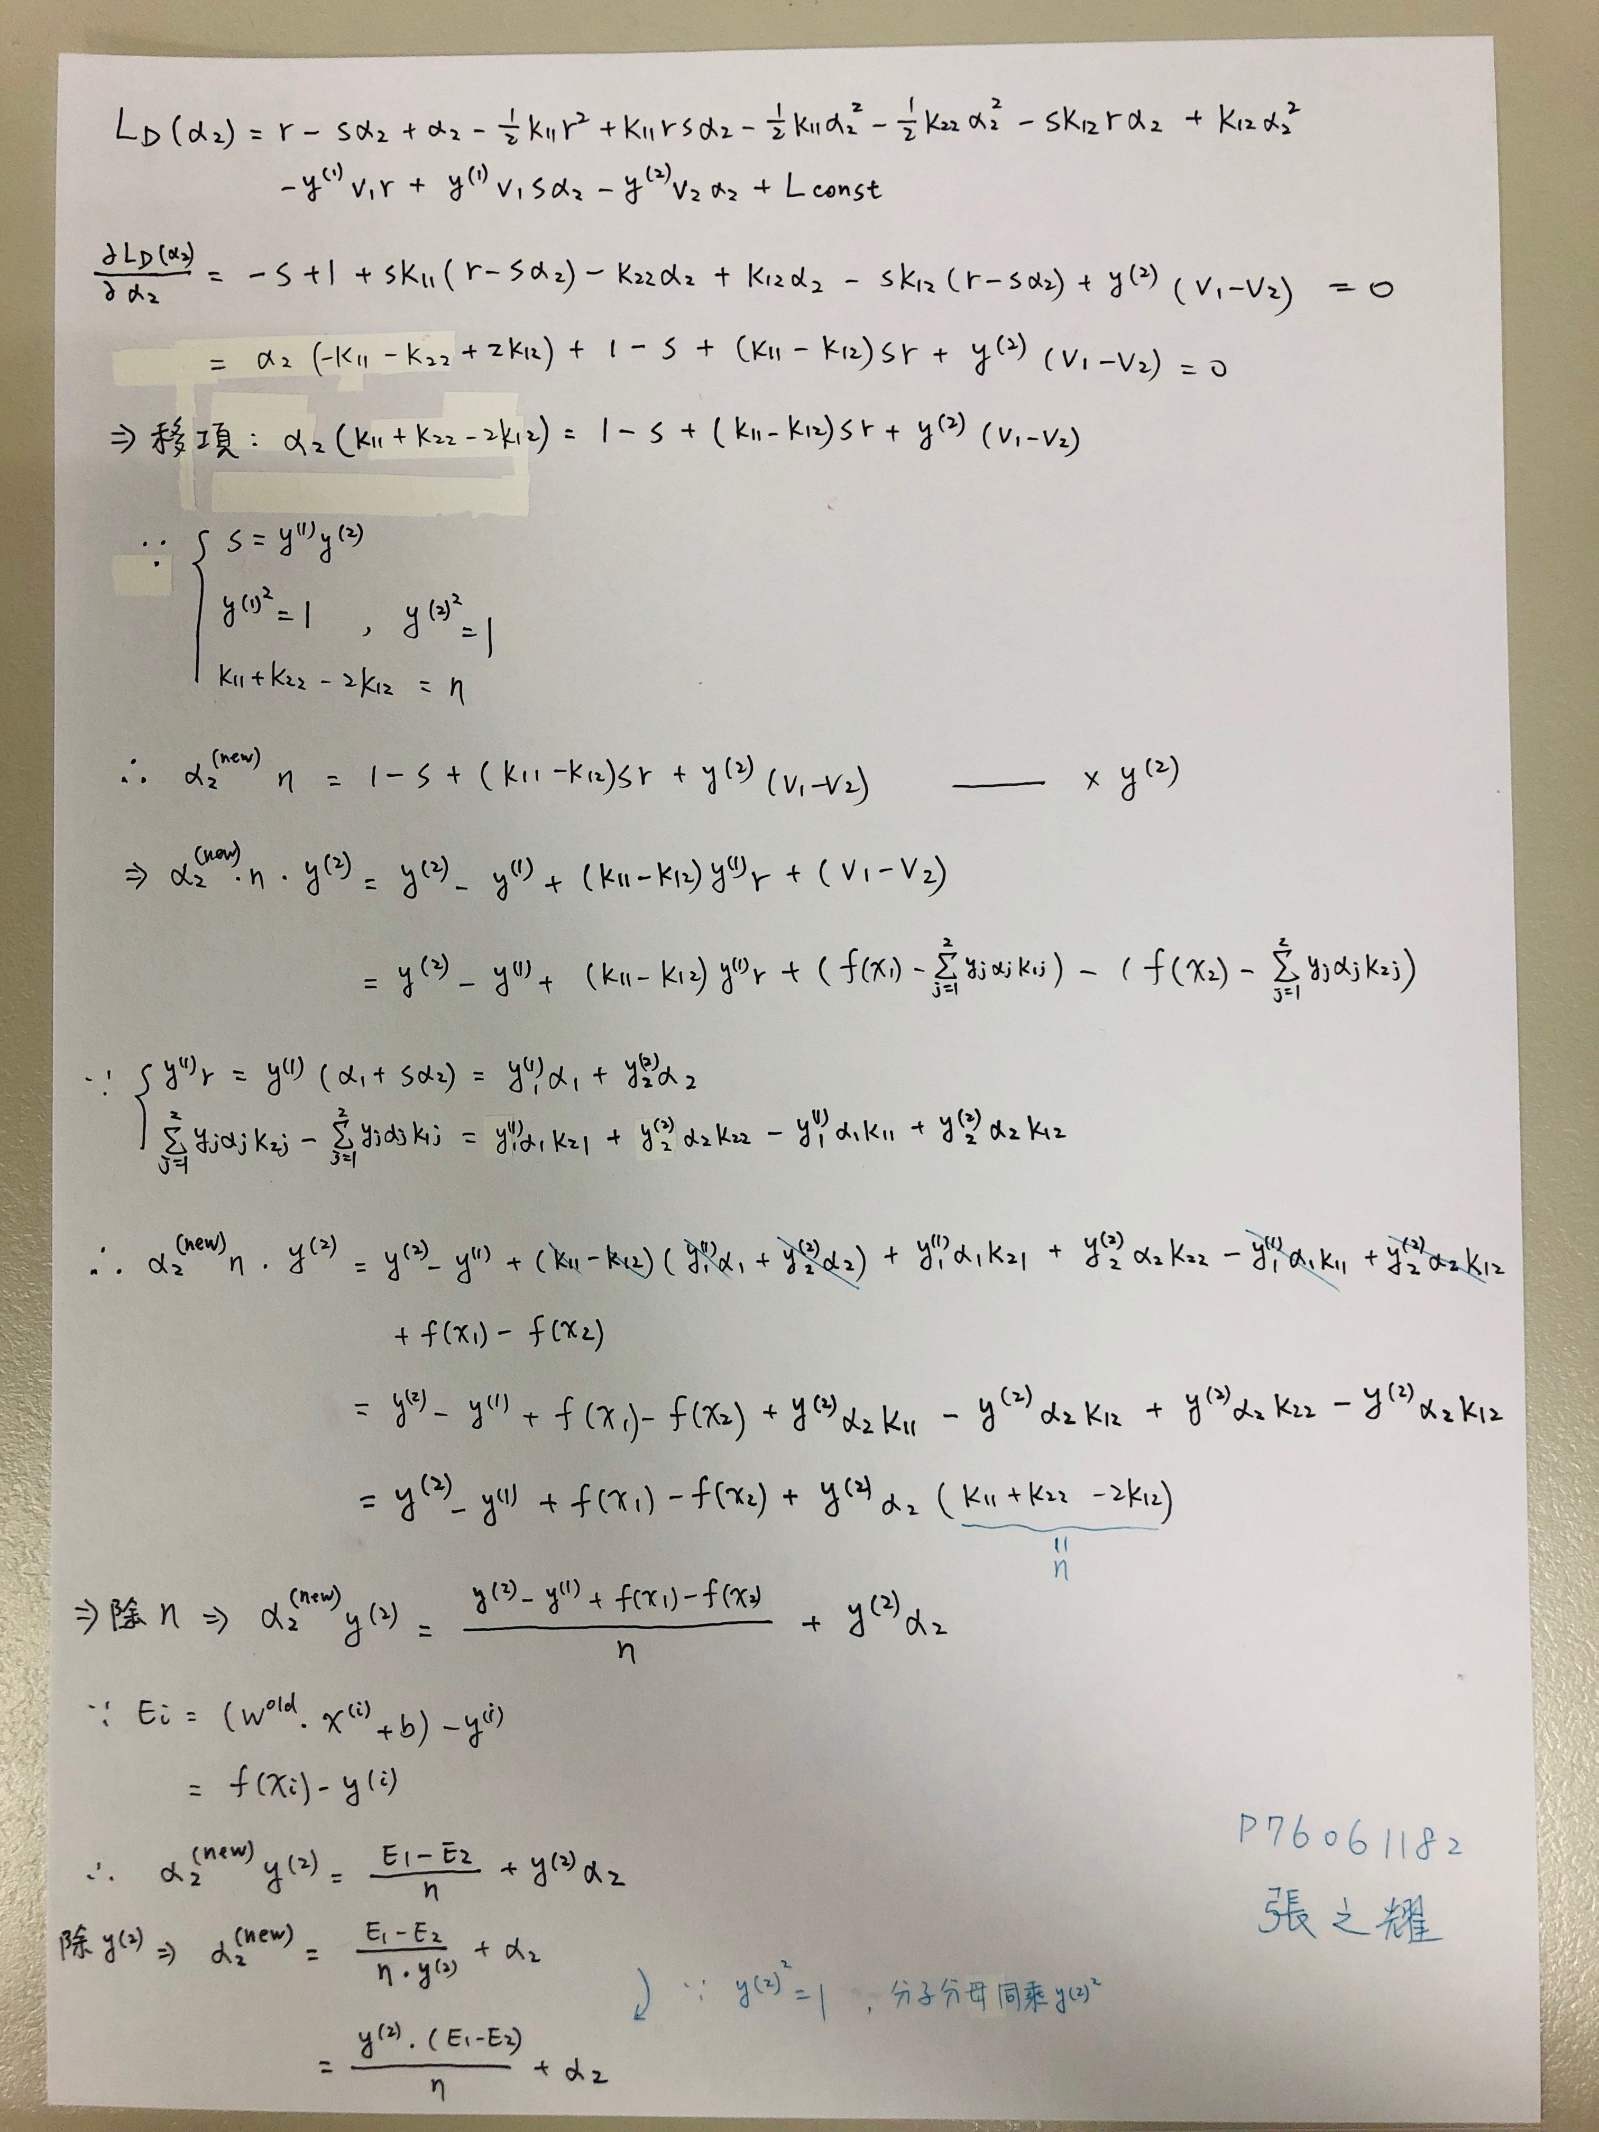 L_D(α₂) = r - sα₂ + α₂ - ½K₁₁r² + K₁₁rsα₂ - ½K₁₁α₂² - ½K₂₂α₂² - sK₁₂rα₂ + K₁₂α₂²
-y⁽¹⁾V₁r + y⁽¹⁾V₁sα₂ - y⁽²⁾V₂α₂ + L const
∂L_D(α₂)/∂α₂ = -s + 1 + sK₁₁(r-sα₂) - K₂₂α₂ + K₁₂α₂ - sK₁₂(r-sα₂) + y⁽²⁾(V₁-V₂) = 0
= α₂(-K₁₁ - K₂₂ + 2K₁₂) + 1 - s + (K₁₁ - K₁₂)sr + y⁽²⁾(V₁-V₂) = 0
⇒ 移項: α₂(K₁₁ + K₂₂ - 2K₁₂) = 1 - s + (K₁₁-K₁₂)sr + y⁽²⁾(V₁-V₂)
∵ { s = y⁽¹⁾y⁽²⁾
y⁽¹⁾² = 1 , y⁽²⁾² = 1
K₁₁+K₂₂ - 2K₁₂ = η
∴ α₂⁽ⁿᵉʷ⁾ η = 1 - s + (K₁₁-K₁₂)sr + y⁽²⁾(V₁-V₂) —— × y⁽²⁾
⇒ α₂⁽ⁿᵉʷ⁾·η·y⁽²⁾ = y⁽²⁾ - y⁽¹⁾ + (K₁₁-K₁₂)y⁽¹⁾r + (V₁-V₂)
= y⁽²⁾ - y⁽¹⁾ + (K₁₁-K₁₂)y⁽¹⁾r + (f(x₁) - Σ_{j=1}^{2} yⱼαⱼK₁ⱼ) - (f(x₂) - Σ_{j=1}^{2} yⱼαⱼK₂ⱼ)
∵ { y⁽¹⁾r = y⁽¹⁾(α₁ + sα₂) = y₁⁽¹⁾α₁ + y₂⁽²⁾α₂
Σ_{j=1}^{2} yⱼαⱼK₂ⱼ - Σ_{j=1}^{2} yⱼαⱼK₁ⱼ = y₁⁽¹⁾α₁K₂₁ + y₂⁽²⁾α₂K₂₂ - y₁⁽¹⁾α₁K₁₁ + y₂⁽²⁾α₂K₁₂
∴ α₂⁽ⁿᵉʷ⁾η·y⁽²⁾ = y⁽²⁾ - y⁽¹⁾ + (K₁₁-K₁₂)(y₁⁽¹⁾α₁ + y₂⁽²⁾α₂) + y₁⁽¹⁾α₁K₂₁ + y₂⁽²⁾α₂K₂₂ - y₁⁽¹⁾α₁K₁₁ + y₂⁽²⁾α₂K₁₂
+ f(x₁) - f(x₂)
= y⁽²⁾ - y⁽¹⁾ + f(x₁) - f(x₂) + y⁽²⁾α₂K₁₁ - y⁽²⁾α₂K₁₂ + y⁽²⁾α₂K₂₂ - y⁽²⁾α₂K₁₂
= y⁽²⁾ - y⁽¹⁾ + f(x₁) - f(x₂) + y⁽²⁾α₂(K₁₁+K₂₂-2K₁₂)
= η
⇒ 除 η ⇒ α₂⁽ⁿᵉʷ⁾y⁽²⁾ = (y⁽²⁾ - y⁽¹⁾ + f(x₁) - f(x₂))/η + y⁽²⁾α₂
∵ Eᵢ = (W^old · x⁽ⁱ⁾ + b) - y⁽ⁱ⁾
= f(xᵢ) - y⁽ⁱ⁾
P76061182
∴ α₂⁽ⁿᵉʷ⁾y⁽²⁾ = (E₁-E₂)/η + y⁽²⁾α₂
張之耀
除 y⁽²⁾ ⇒ α₂⁽ⁿᵉʷ⁾ = (E₁-E₂)/(η·y⁽²⁾) + α₂
∵ y⁽²⁾² = 1 , 分子分母同乘 y⁽²⁾²
= y⁽²⁾·(E₁-E₂)/η + α₂